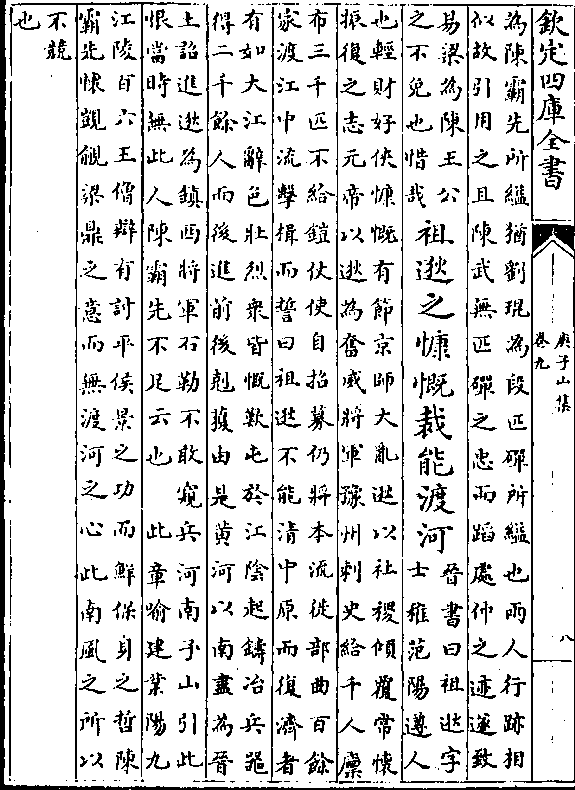 欽定四庫全書
庾子山集
卷九
八
為陳霸先所縊猶劉琨為段匹磾所縊也兩人行跡相
似故引用之且陳武無匹磾之忠而蹈處仲之迹遂致
易梁為陳王公
之不免也惜哉
祖逖之慷慨裁能渡河
晉書曰祖逖字
士稚范陽遒人
也輕財好俠慷慨有節京師大亂逖以社稷傾覆常懷
振復之志元帝以逖為奮威將軍豫州刺史給千人廩
布三千匹不給鎧仗使自招募仍將本流徙部曲百餘
家渡江中流擊楫而誓曰祖逖不能清中原而復濟者
有如大江辭色壯烈衆皆慨歎屯於江陰起鑄冶兵器
得二千餘人而後進前後剋獲由是黄河以南盡為晉
土詔進逖為鎮西將軍石勒不敢窺兵河南子山引此
恨當時無此人陳霸先不足云也 此章喻建業陽九
江陵百六王僧辯有討平侯景之功而鮮保身之哲陳
霸先懷覬覦梁鼎之意而無渡河之心此南風之所以
不競
也